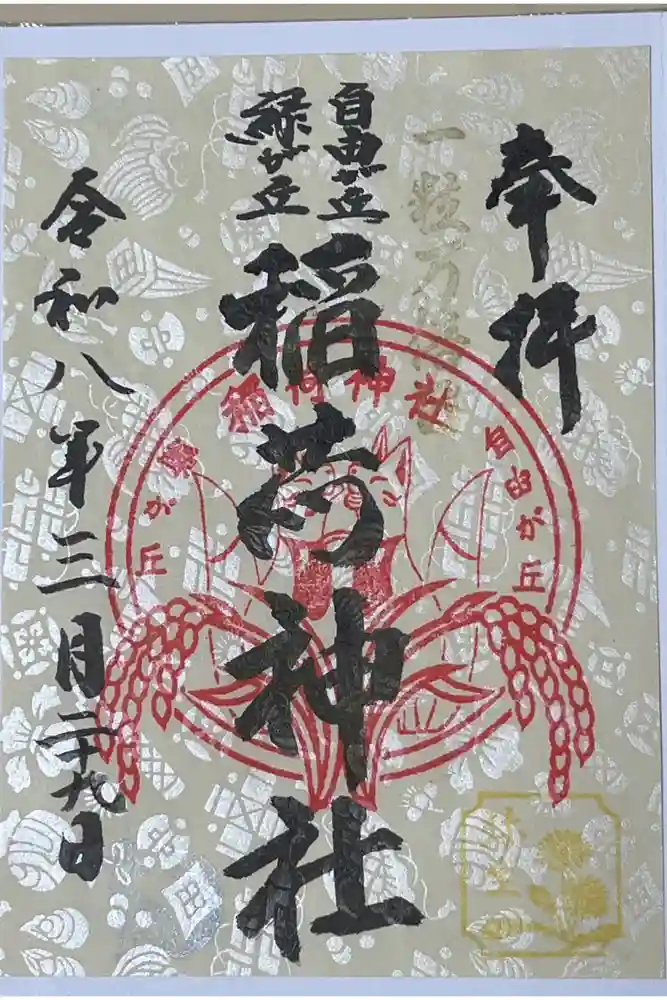 奉拝
一粒万倍
自由が丘
緑が丘
稲荷神社
稲荷神社
自由が丘
緑が丘
令和八年三月二十九日